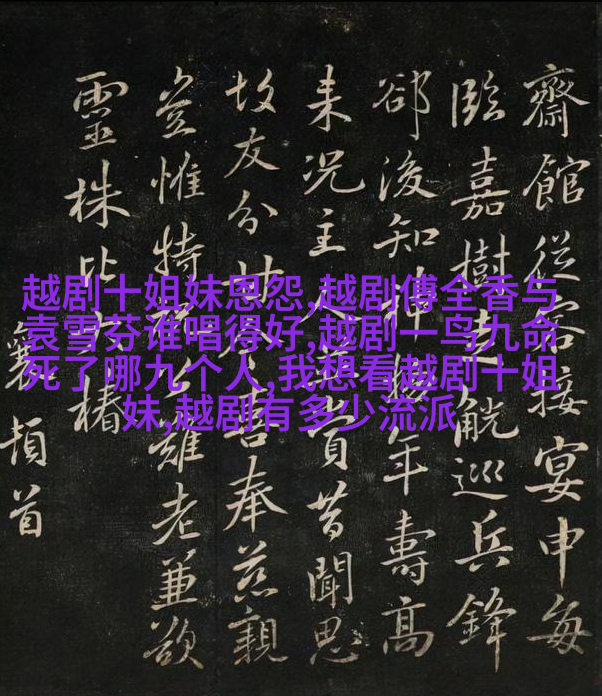 越剧十姐妹恩怨,越剧傅全香与
袁雪芬谁唱得好,越剧一鸟九命
死了哪九个人,我想看越剧十姐
妹,越剧有多少流派
齋館從容接宴申每
臨嘉樹走觥巡兵鋒
郤後知神年壽高
来況主人首昔聞思
故友分甘今喜奉慈親
豈惟特難老兼欲
靈株比大椿
襄頓首